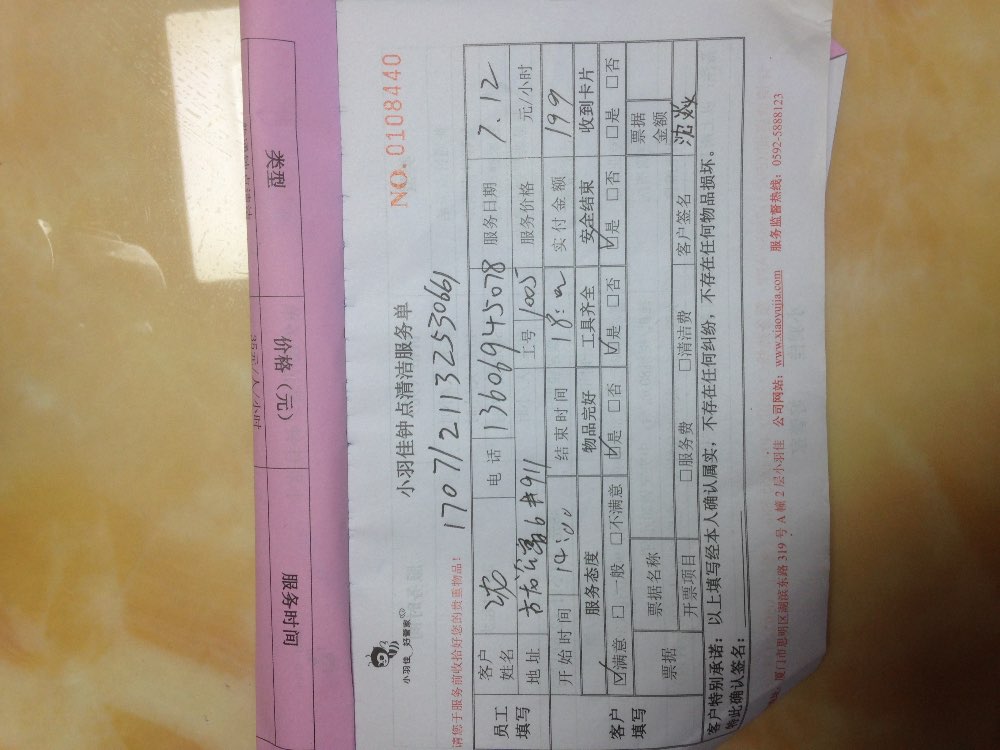 类型
价格（元）
服务时间
小羽佳 好管家
NO.0108440
小羽佳钟点清洁服务单
请您于服务前收拾好您的贵重物品！
1707121132530661
员工填写
客户姓名 电话 13606945078 服务日期 7.12
地址 6#911 工号 1005 服务价格 元/小时
开始时间 14:00 结束时间 18:00 实付金额 199
客户填写
服务态度 物品完好 工具齐全 安全结束 收到卡片
☑满意 □一般 □不满意 ☑是 □否 ☑是 □否 ☑是 □否 □是 □否
票据 票据名称 票据金额
开票项目 □服务费 □清洁费 客户签名 沈
客户特别承诺：以上填写经本人确认属实，不存在任何纠纷，不存在任何物品损坏。
特此确认签名：
厦门市思明区湖滨东路319号A幢2层小羽佳 公司网站：www.xiaoyujia.com 服务监督热线：0592-5888123